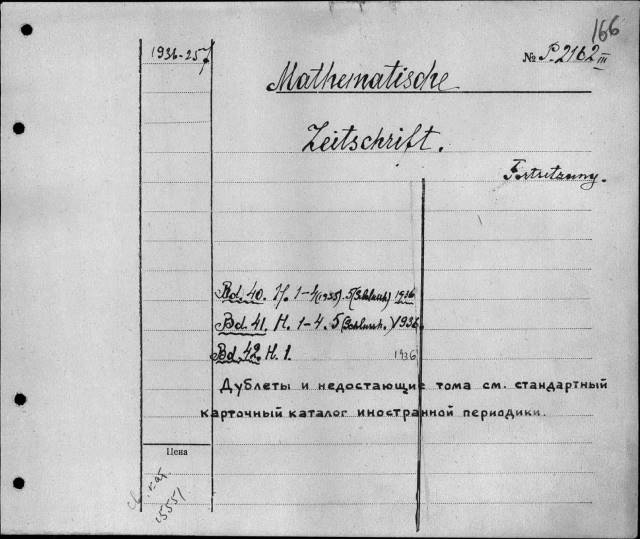 166
1936-257
№ P.2162 III
Mathematische
Zeitschrift.
Fortsetzung.
Bd. 40. H. 1-4 (1935). 5 (Schluch.) 1936
Bd. 41. H. 1-4. 5 (Schlusch.) 1936
Bd. 42. H. 1. 1936
Дублеты и недостающие тома см. стандартный
карточный каталог иностранной периодики.
Цена
15551